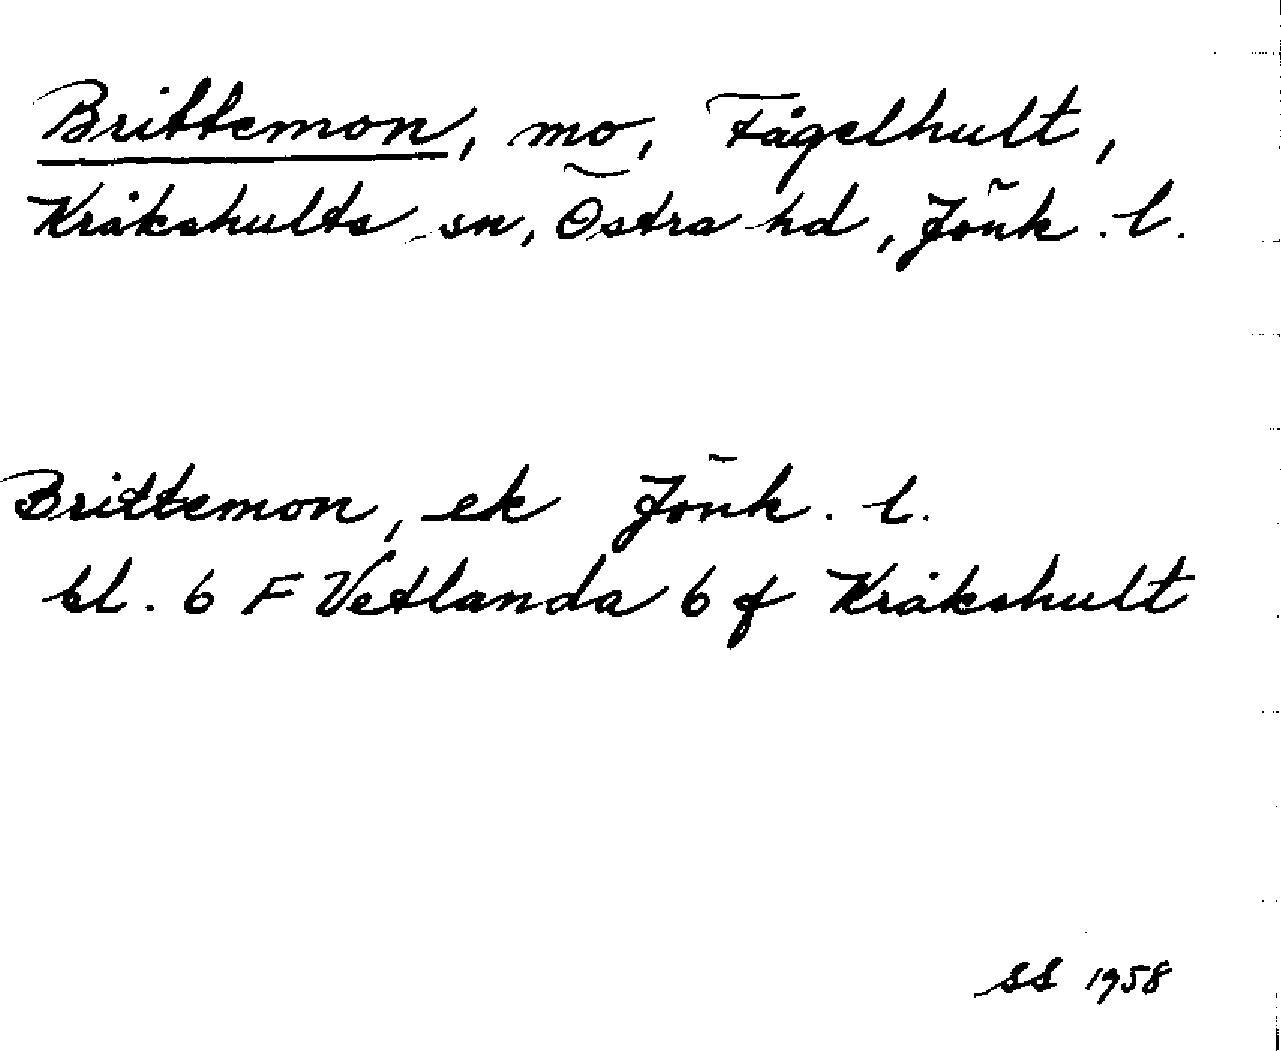 Brittemon, mo, Fågelhult,
Kråkshults sn, Östra hd, Jönk. l.
Brittemon, ek Jönk. l.
bl. 6 F Vetlanda 6 f Kråkshult
SS 1958